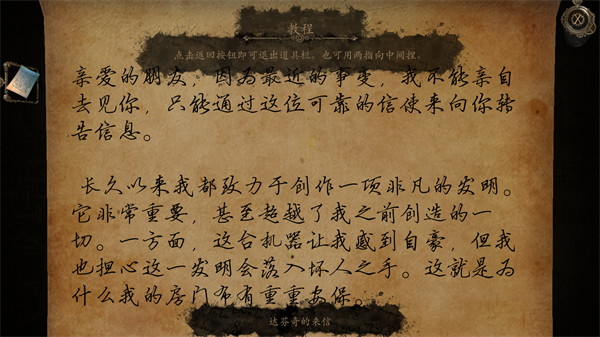 教程
点击返回按钮即可退出道具栏。也可用两指向中间捏。
亲爱的朋友，因为最近的事变，我不能亲自
去见你，只能通过这位可靠的信使来向你转
告信息。
长久以来我都致力于创作一项非凡的发明。
它非常重要，甚至超越了我之前创造的一
切。一方面，这台机器让我感到自豪，但我
也担心这一发明会落入坏人之手。这就是为
什么我的房门布有重重安保。
达芬奇的来信